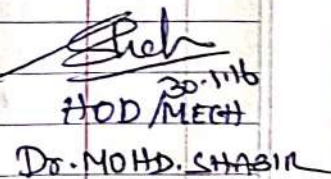 30.1.16
HOD/MECH
Dr. MOHD. SHABIR